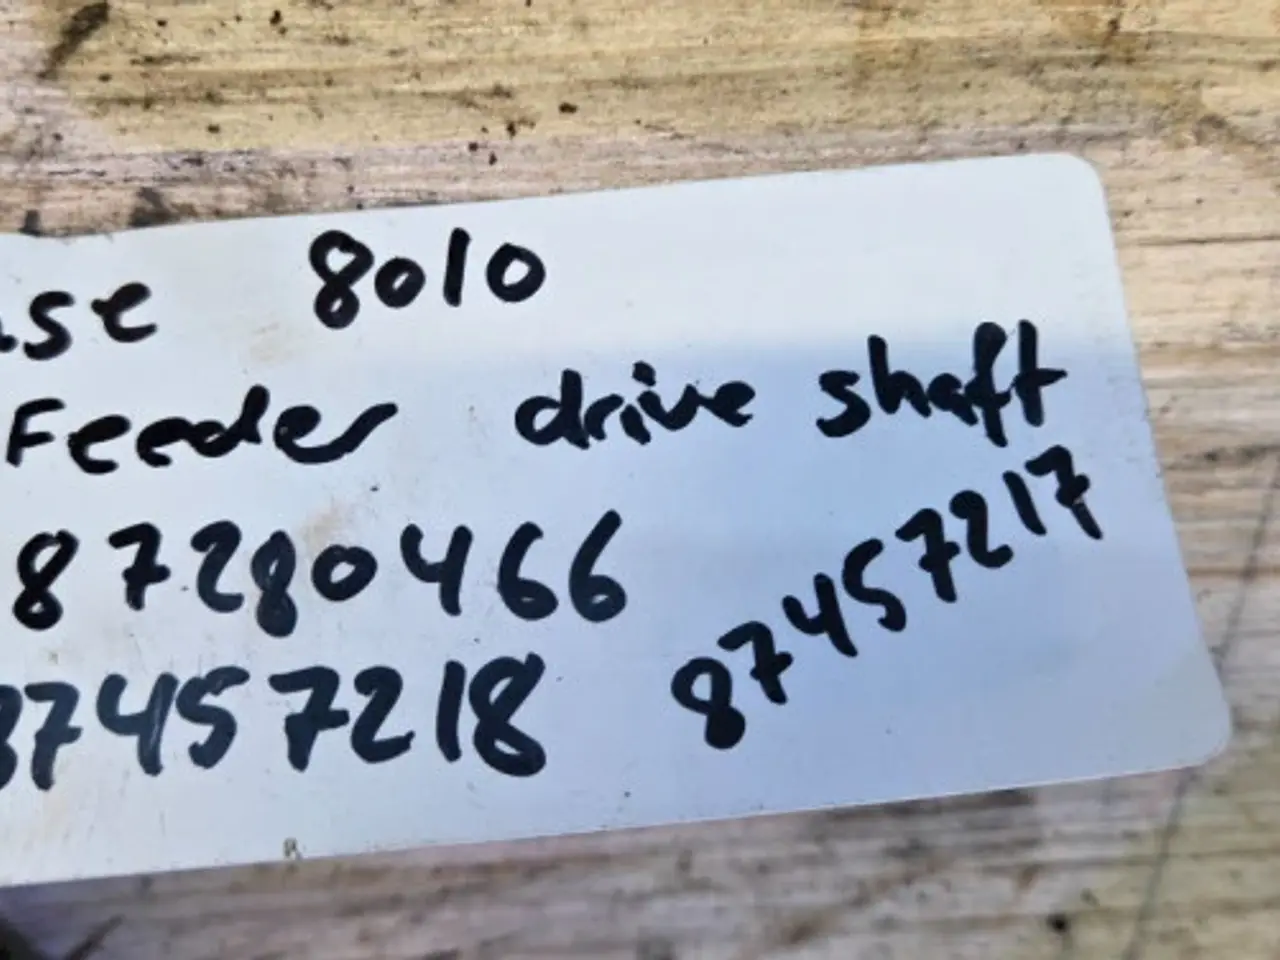 ase 8010
Feeder drive shaft
87280466
87457218 87457217